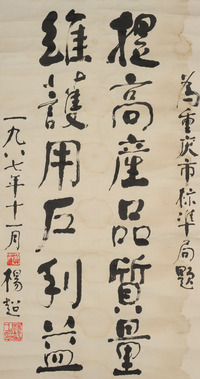 為重庆市标準局題
提高產品質量
維護用户利益
一九八七年十一月
楊超